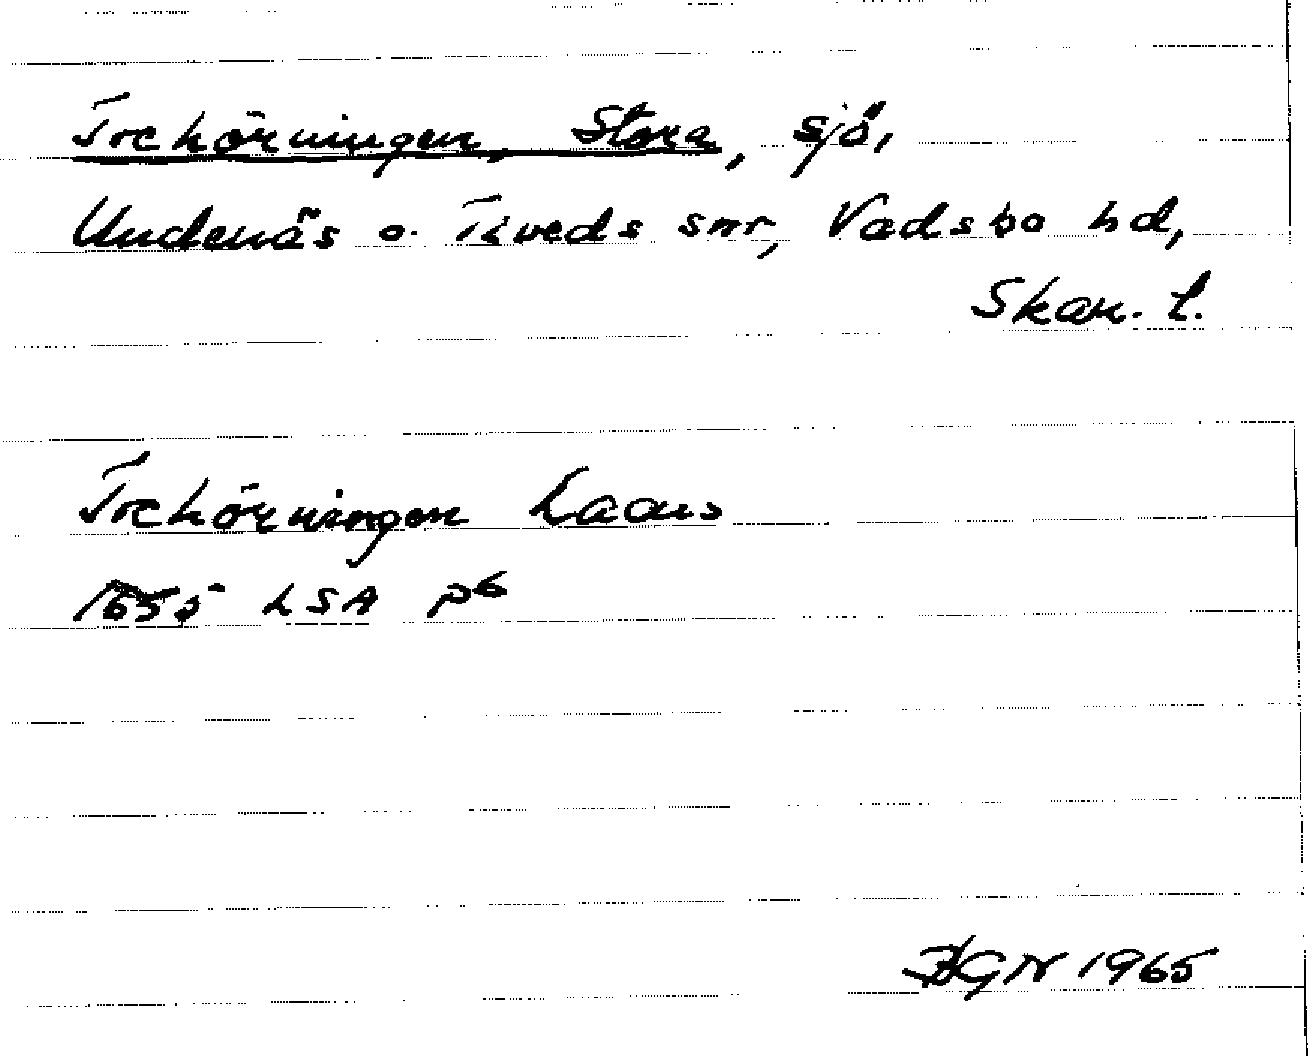 Trehörningen, Stora, sjö,
Undenäs o. Tiveds snr, Vadsbo hd,
Skar. l.
Trehörningen Lacus
1655 LSA P6
1965